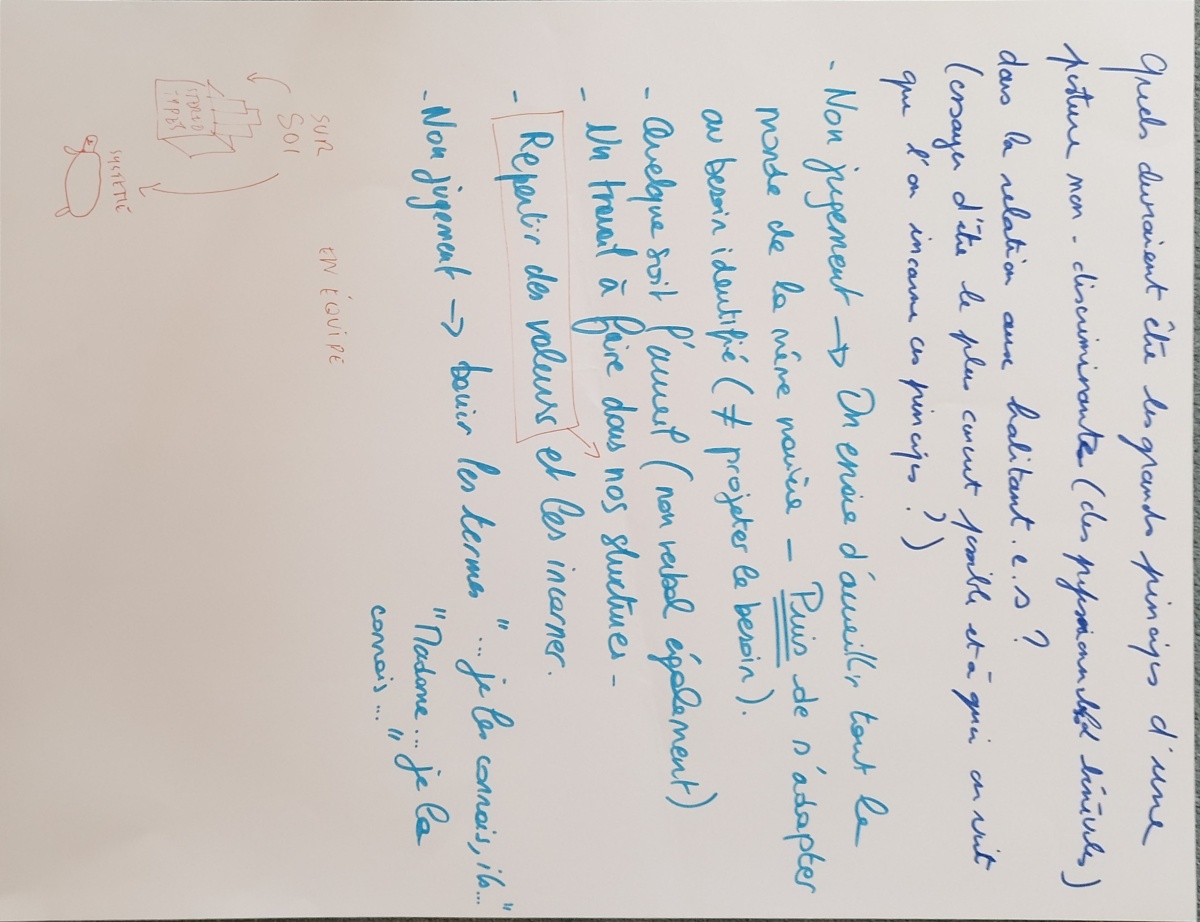 Quels devraient être les grands principes d'une
posture non-discriminante (des professionnels bénévoles)
dans la relation aux habitant.e.s ?
(essayer d'être le plus concret possible et à quoi on voit
que l'on incarne ces principes ?)
- Non jugement → On essaie d'accueillir tout le
monde de la même manière - Puis de s'adapter
au besoin identifié (≠ projeter le besoin).
- Quelque soit l'accueil (non verbal également)
- Un travail à faire dans nos structures -
- Repartir des valeurs et les incarner.
- Non jugement → bannir les termes "... je les connais, ils..."
"Madame... je la
connais... "
SUR
SOI
EN ÉQUIPE